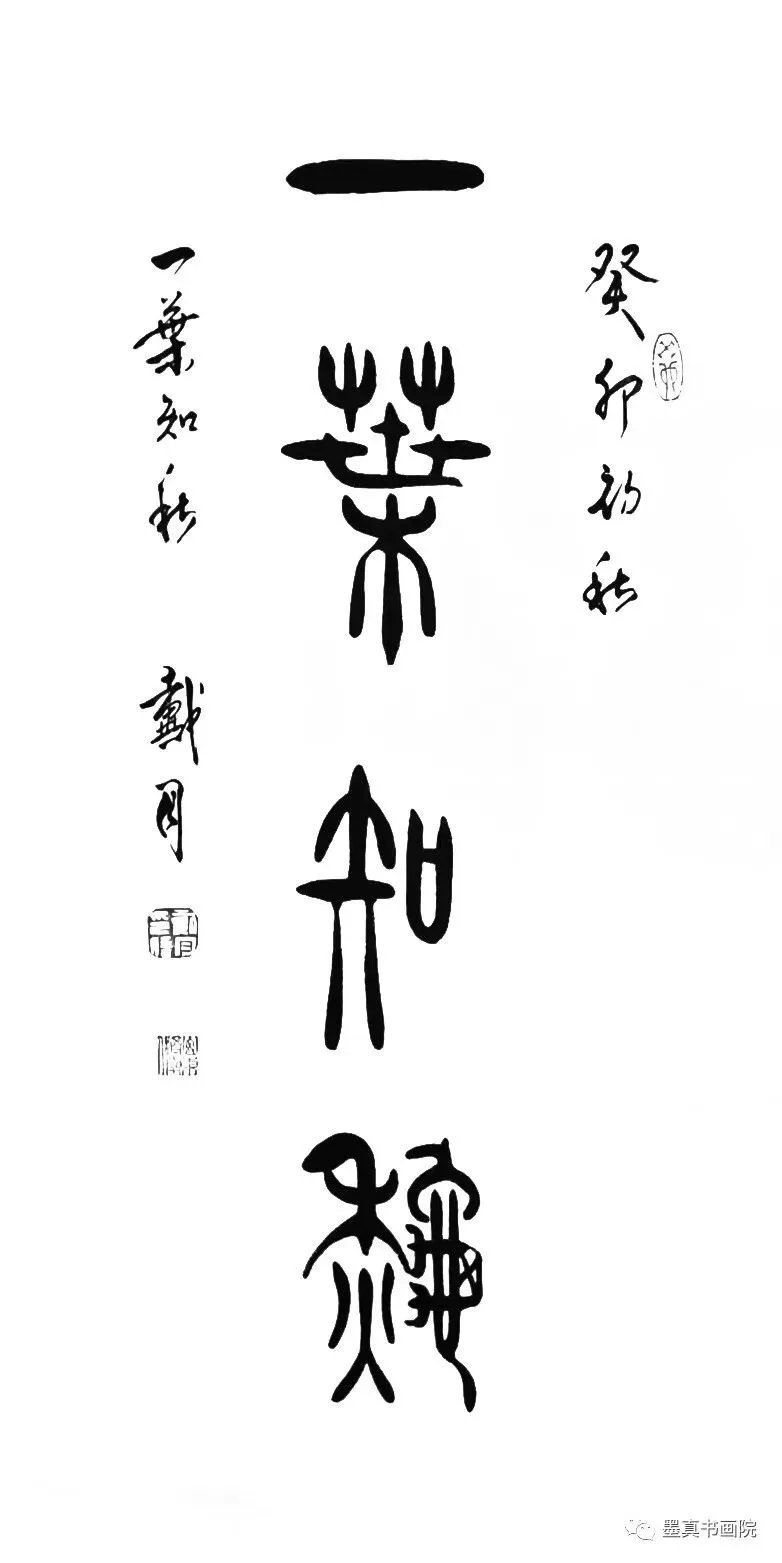 癸卯初秋
一葉知秋
一葉知秋 戴月
墨真书画院